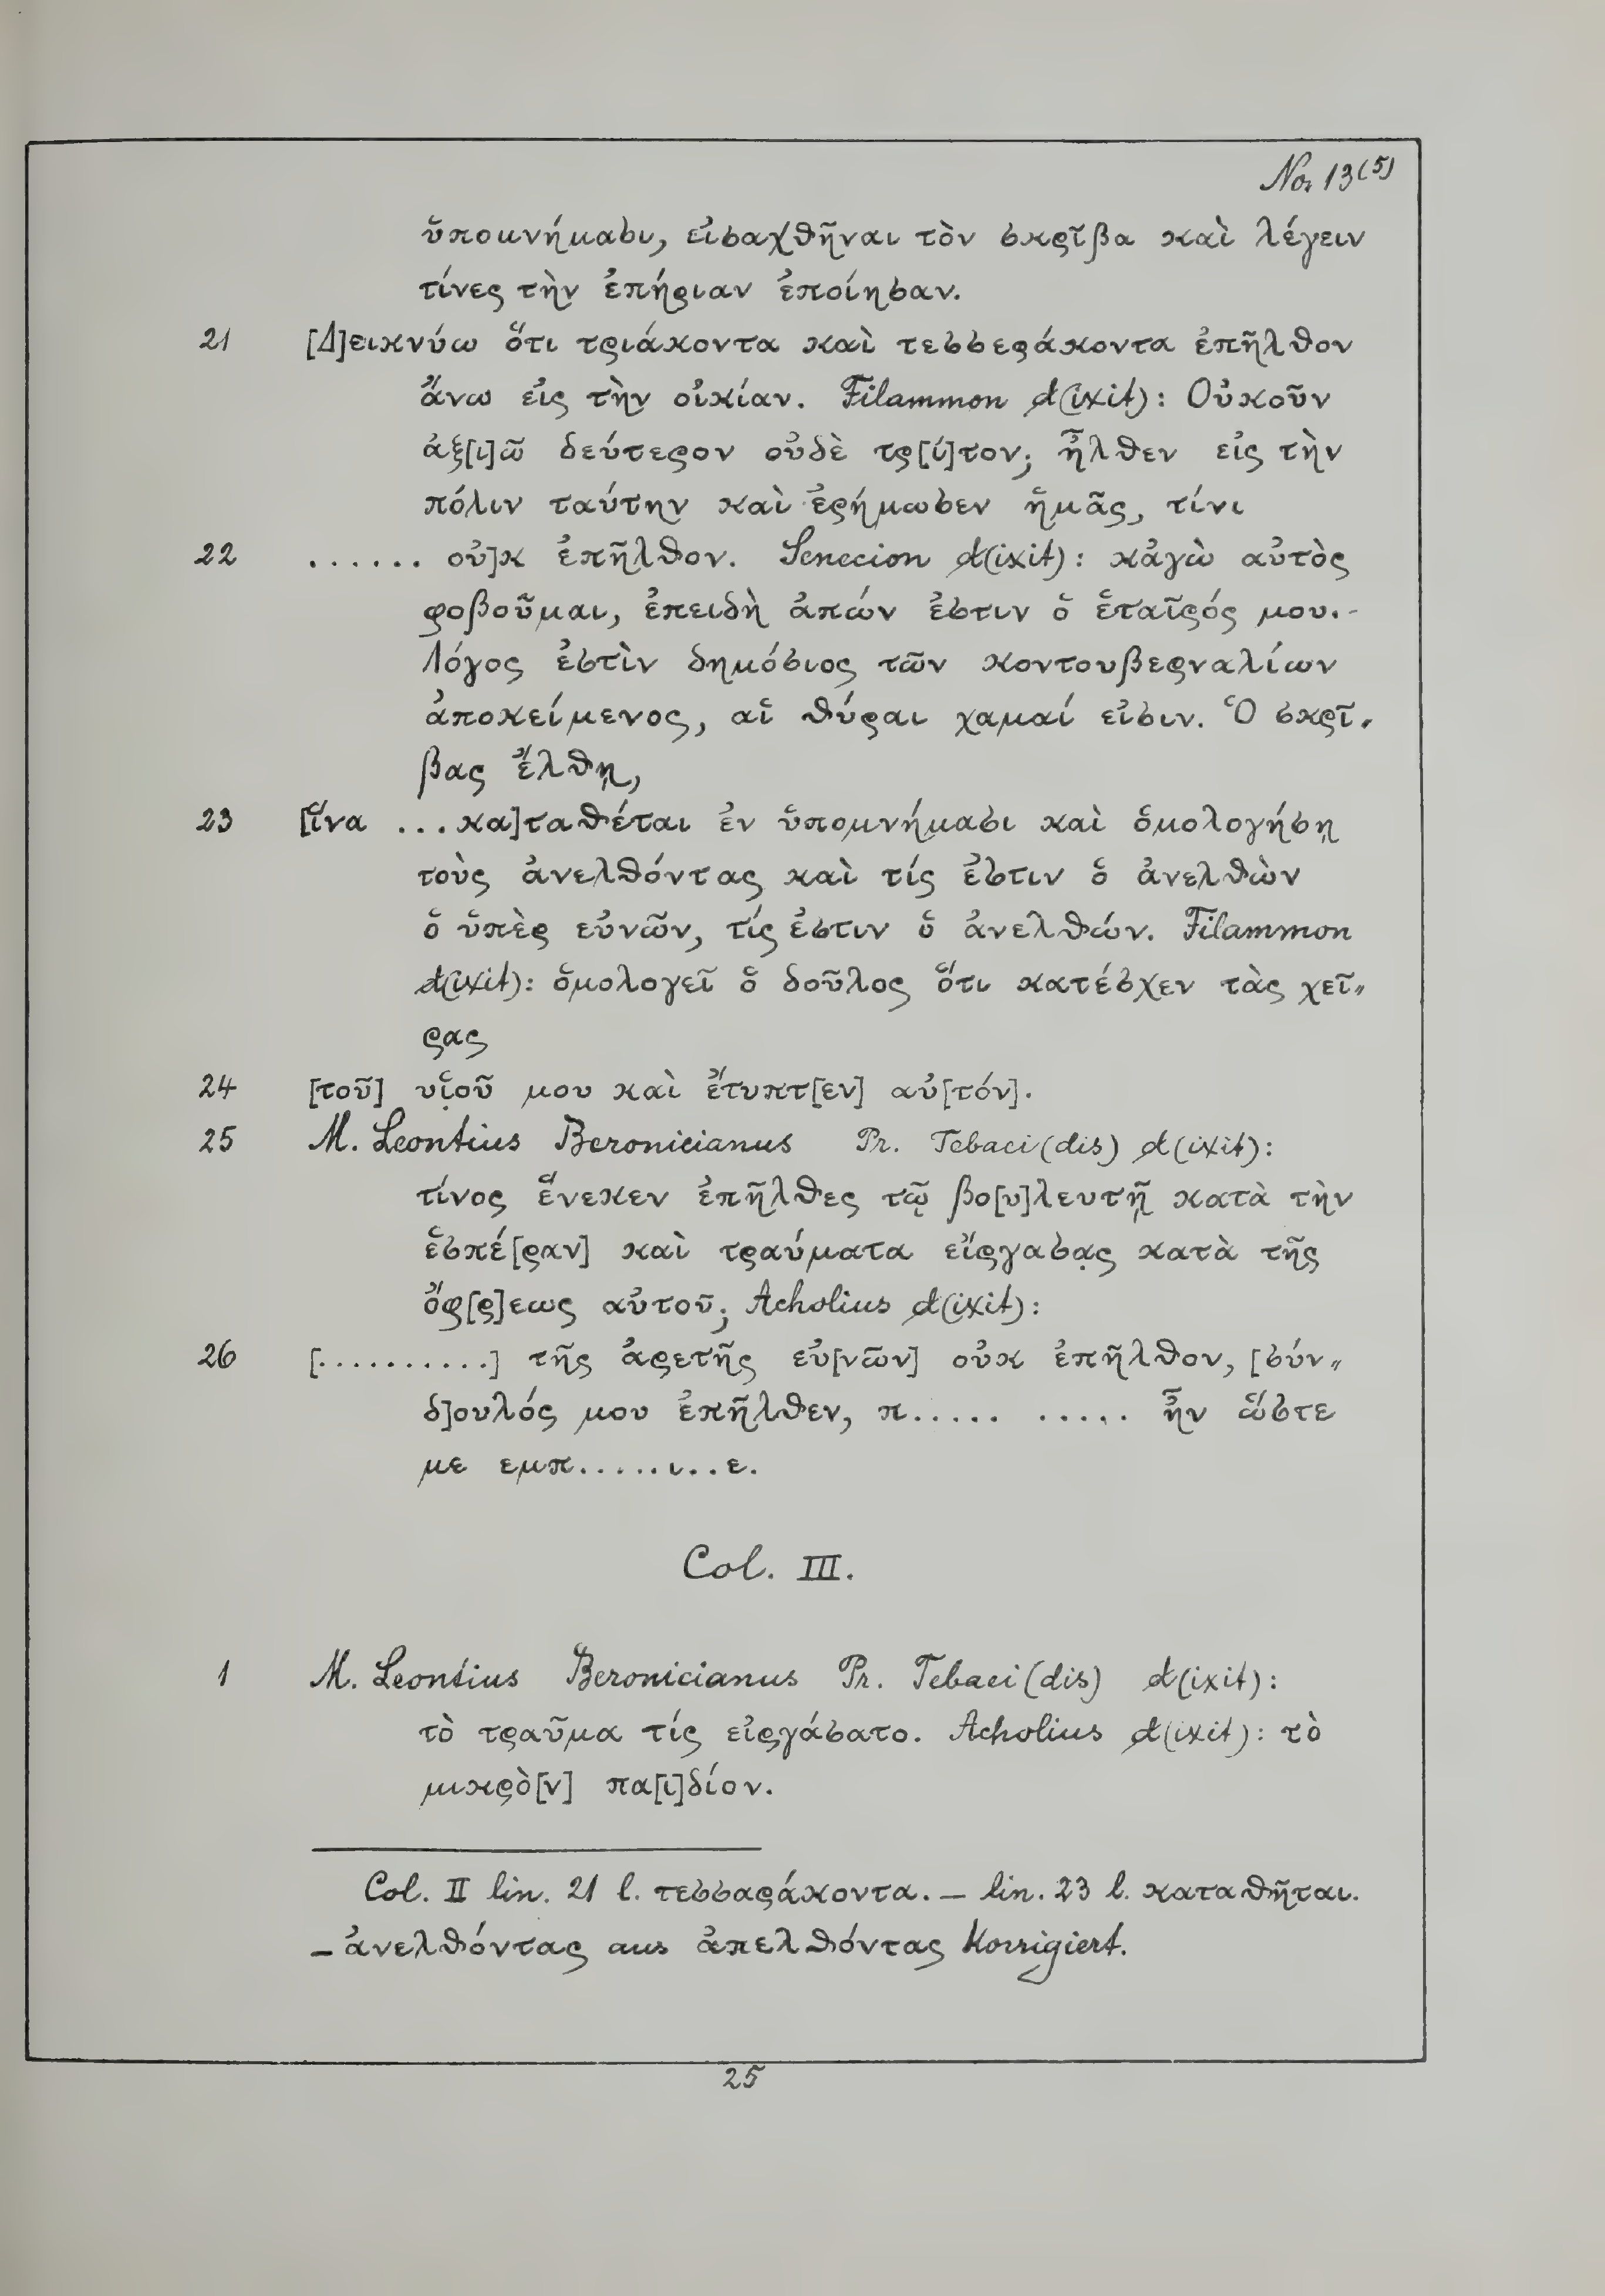 No. 13(5)
ὑπομνήμασι, εἰσαχθῆναι τὸν σκρῖβα καὶ λέγειν
τίνες τὴν ἐπήριαν ἐποίησαν.
21 [Δ]εικνύω ὅτι τριάκοντα καὶ τεσσεράκοντα ἐπῆλθον
ἄνω εἰς τὴν οἰκίαν. Filammon d(ixit): Οὐκοῦν
ἀξ[ι]ῶ δεύτερον οὐδὲ τρ[ί]τον; ἦλθεν εἰς τὴν
πόλιν ταύτην καὶ ἐρήμωσεν ἡμᾶς, τίνι
22 ...... οὐ]κ ἐπῆλθον. Senecion d(ixit): κἀγὼ αὐτὸς
φοβοῦμαι, ἐπειδὴ ἀπών ἐστιν ὁ ἑταῖρός μου.-
Λόγος ἐστὶν δημόσιος τῶν κοντουβερναλίων
ἀποκείμενος, αἱ θύραι χαμαί εἰσιν. Ὁ σκρῖ-
βας ἔλθῃ,
23 [ἵνα ...κα]ταθέται ἐν ὑπομνήμασι καὶ ὁμολογήσῃ
τοὺς ἀνελθόντας καὶ τίς ἐστιν ὁ ἀνελθὼν
ὁ ὑπὲρ εὐνῶν, τίς ἐστιν ὁ ἀνελθών. Filammon
d(ixit): ὁμολογεῖ ὁ δοῦλος ὅτι κατέσχεν τὰς χεῖ-
ρας
24 [τοῦ] υἱ̣οῦ μου καὶ ἔτυπτ[εν] αὐ[τόν].
25 M. Leontius Beronicianus Pr. Tebaei(dis) d(ixit):
τίνος ἕνεκεν ἐπῆλθες τῷ βο[υ]λευτῇ κατὰ τὴν
ἑσπέ[ραν] καὶ τραύματα εἴργασα̣ς κατὰ τῆς
ὄφ[ρ]εως αὐτοῦ; Acholius d(ixit):
26 [..........] τῆς ἀρετῆς εὐ[νῶν] οὐκ ἐπῆλθον, [σύν-
δ]ουλός μου ἐπῆλθεν, π..... ..... ἦν ὥστε
με εμπ.....ι..ε.
Col. III.
1 M. Leontius Beronicianus Pr. Tebaei(dis) d(ixit):
τὸ τραῦμα τίς εἰργάσατο. Acholius d(ixit): τὸ
μικρὸ[ν] πα[ι]δίον.
Col. II lin. 21 l. τεσσαράκοντα. – lin. 23 l. καταθῆται.
– ἀνελθόντας aus ἀπελθόντας korrigiert.
25